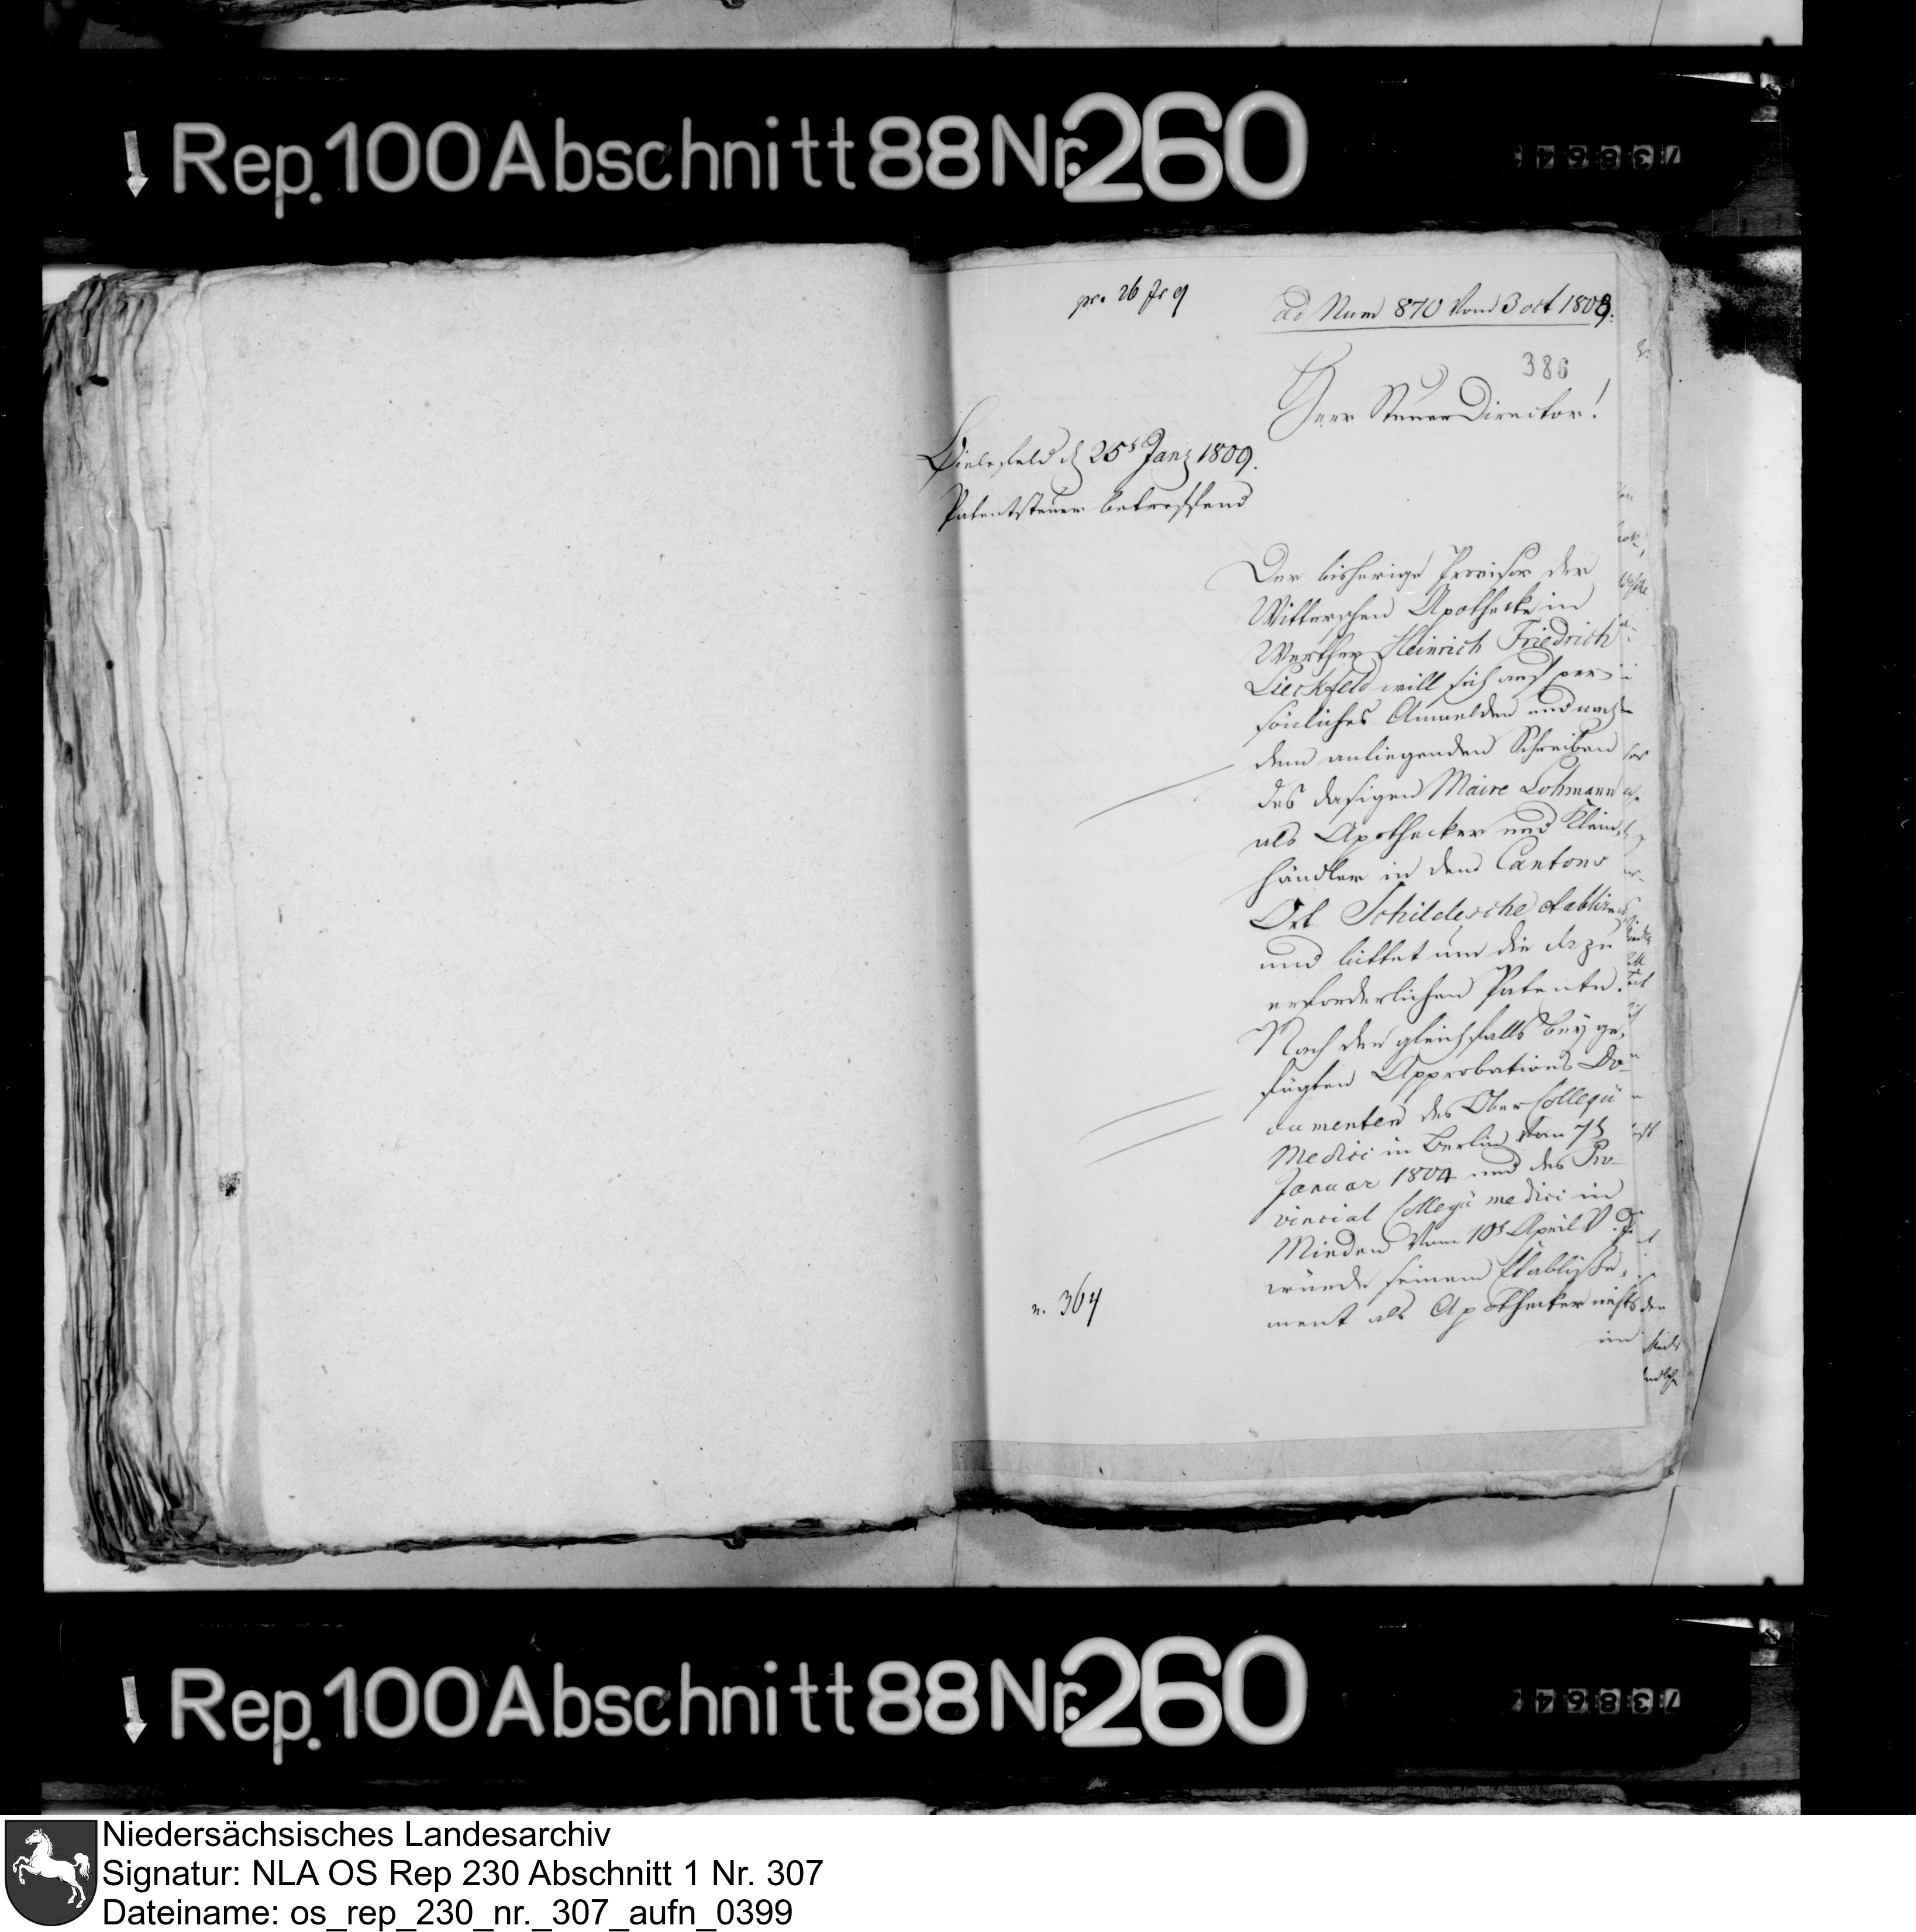 Rep. 100 Abschnitt 88 Nr. 260
73864
pr. 26 Jr 9
ad Num 870 vom 3 oct 1808.
386
Herr SteuerDirector!
Bielefeld d 25t Janz 1809.
Patentsteuer betreffend
Der bisherige Provisor der
Witterschen Apothecke in
Werther Heinrich Friedrich
Lieckfeld will sich auf per-
sönliches Anmelden und nach
dem anliegenden Schreiben
des dasigen Maire Lohmann
als Apothecker und Klein-
händler in dem Cantons
Ort Schildesche etabliren
und bittet um die dazu
erforderlichen Patente.
Nach den gleichfalls beyge-
fügten Approbations Do-
cumenten des Ober Collegii
Medici in Berlin vom 7t
Januar 1804 und des Pro-
vincial Collegii medici in
Minden vom 10t April v. J.
würde seinem Etablisse-
ment als Apothecker nichts
im
n. 364
Rep. 100 Abschnitt 88 Nr. 260
73864
Niedersächsisches Landesarchiv
Signatur: NLA OS Rep 230 Abschnitt 1 Nr. 307
Dateiname: os_rep_230_nr._307_aufn_0399